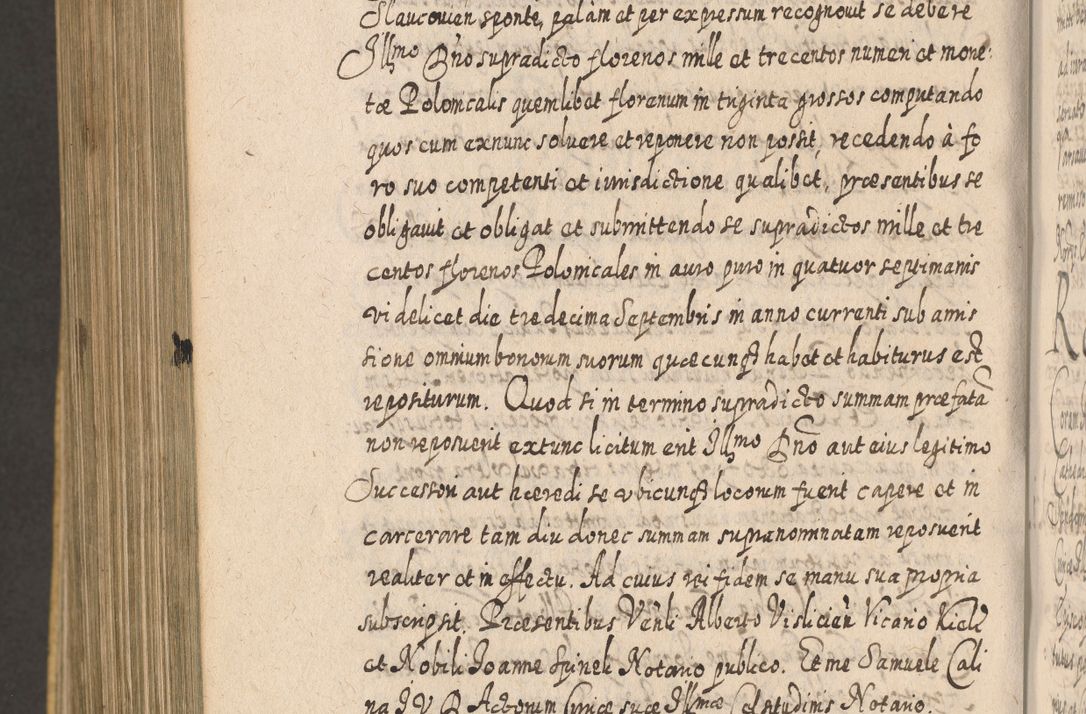 Slaucouien sponte, palam et per expressum recognouit se debere
Jllmo Dno supradicto florenos mille et trecentos numeri et mone:
tæ Polonicalis quemlibet florenum in triginta grossos computando
quos cum exnunc soluere et reponere non possit, recedendo à fo
ro suo competenti et iurisdictione qualibet, præsentibus se
obligauit et obligat et submittendo se supradictos mille et tre
centos florenos Polonicales in auro puro in quatuor septimanis
videlicet die tredecima Septembris in anno currenti sub amis
sione omnium bonorum suorum quæcunq3 habet et habiturus est
repositurum. Quod si in termino supradicto summam præfatã
non reposuerit extunc licitum erit Jllmo Dno aut eius legitimo
Successori aut hæredi se vbicunq3 locorum fuerit capere et in
carcerare tam diu donec summam supranominatam reposuerit
realiter et in effectu. Ad cuius rei fidem se manu sua propria
subscripsit. Præsentibus Venli Alberto Vislicien Vicario Kielc
et Nobili Joanne Spinek Notario publico. Et me Samuele Cali
na J V D Actorum Curiæ suæ Jllmæ Celsitudinis Notario.